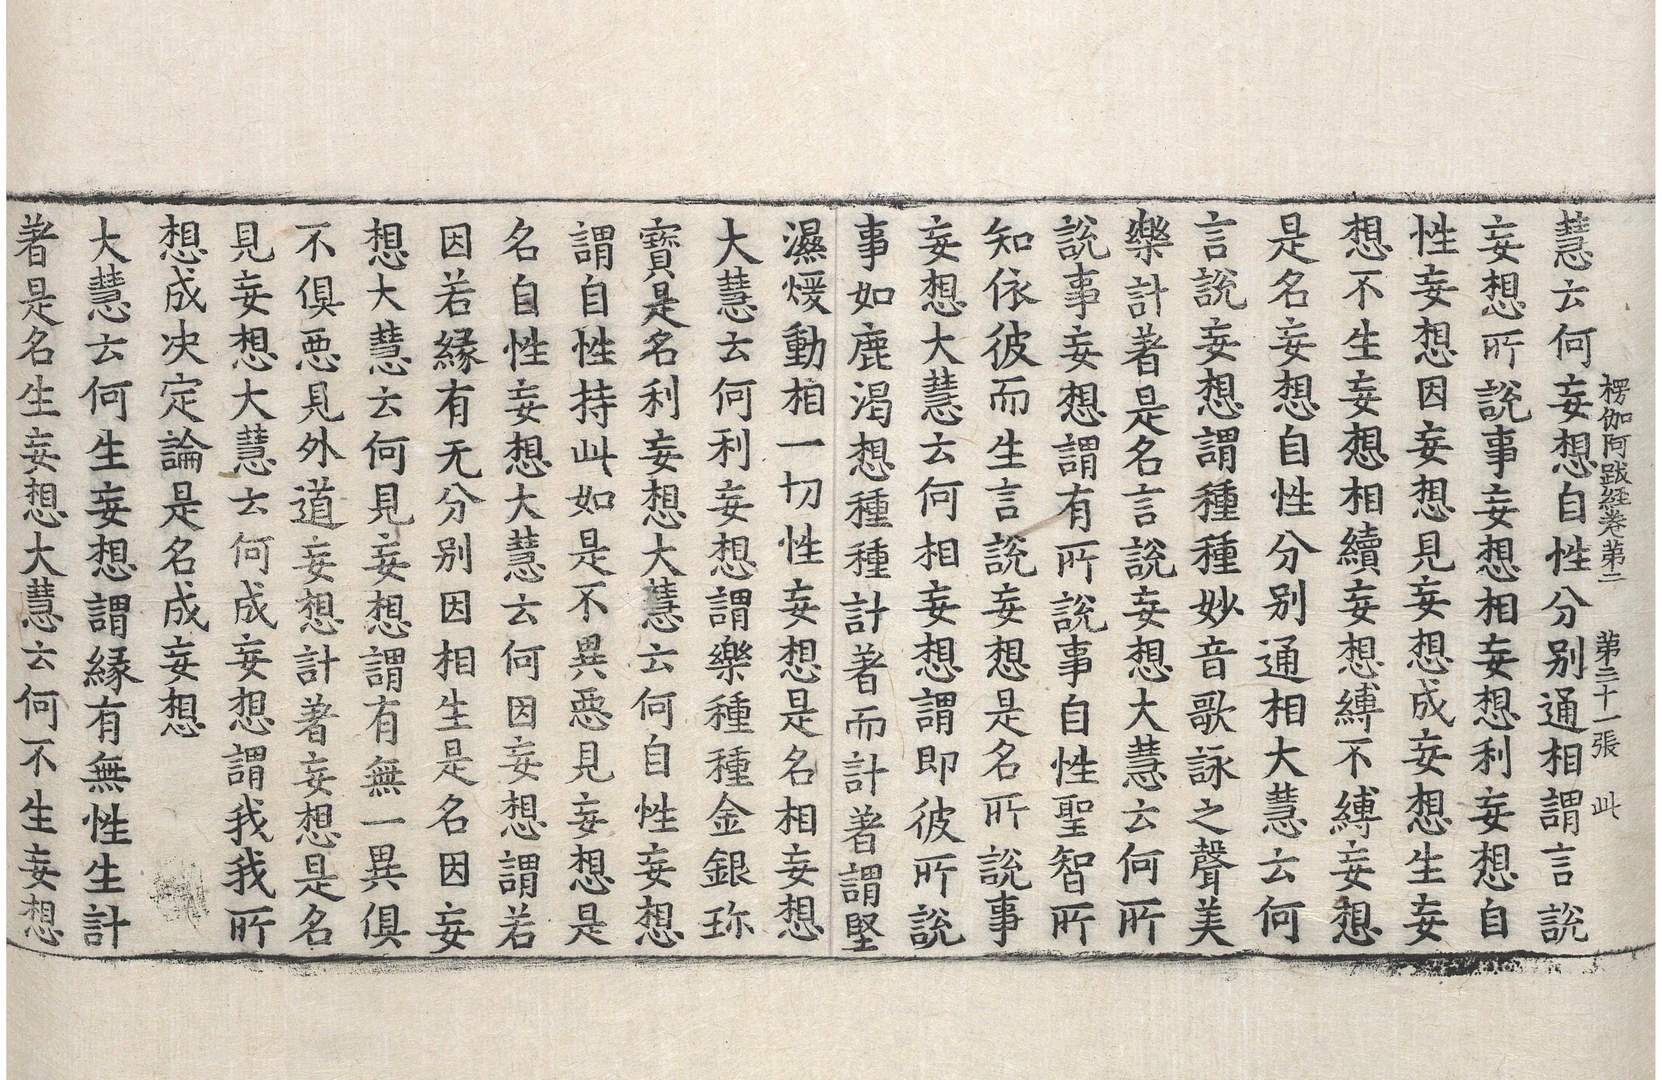 楞伽阿跋経卷苐二 苐三十一張 此
慧云何妄想自性分别通相謂言說
妄想所說事妄想相妄想利妄想自
性妄想因妄想見妄想成妄想生妄
想不生妄想相續妄想縛不縛妄想
是名妄想自性分别通相大慧云何
言說妄想謂種種妙音歌詠之聲美
樂計著是名言說妄想大慧云何所
說事妄想謂有所說事自性聖智所
知依彼而生言說妄想是名所說事
妄想大慧云何相妄想謂即彼所說
事如鹿渴想種種計著而計著謂堅
濕煖動相一切性妄想是名相妄想
大慧云何利妄想謂樂種種金銀珎
寶是名利妄想大慧云何自性妄想
謂自性持此如是不異悪見妄想是
名自性妄想大慧云何因妄想謂若
因若緣有无分别因相生是名因妄
想大慧云何見妄想謂有無一異俱
不俱悪見外道妄想計著妄想是名
見妄想大慧云何成妄想謂我我所
想成决定論是名成妄想
大慧云何生妄想謂緣有無性生計
著是名生妄想大慧云何不生妄想